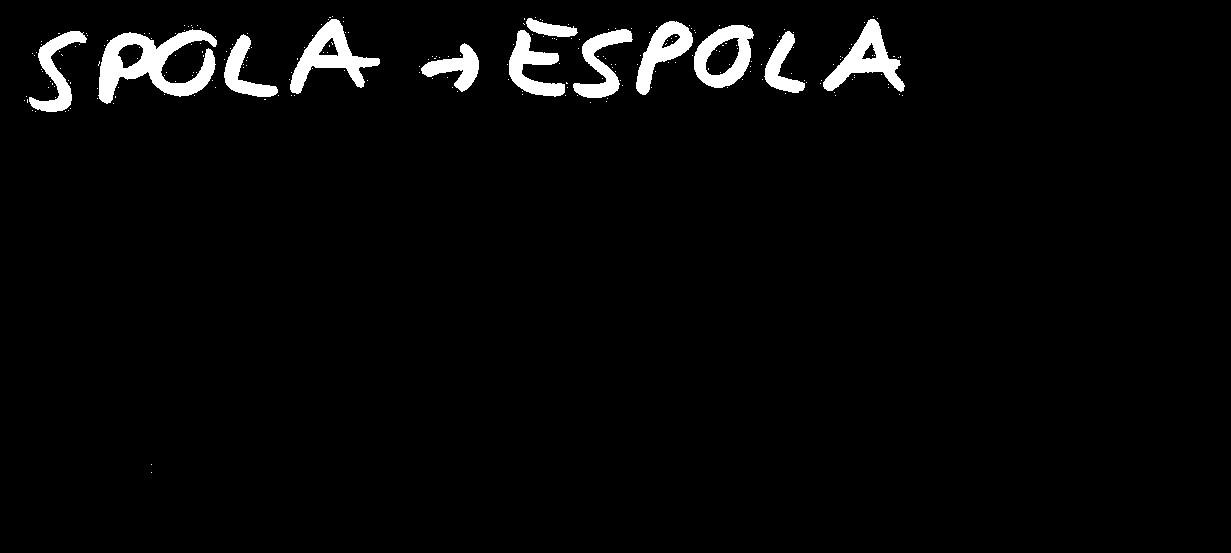 SPOLA → ESPOLA